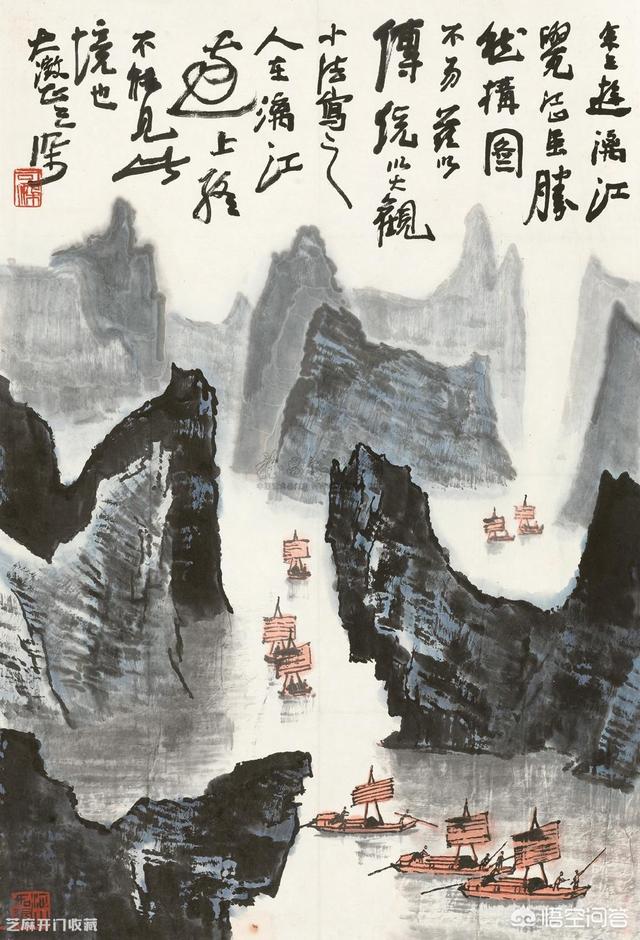 余三遊漓江
覺江山虽勝
然構圖
不易茲以
傳統以大觀
小法寫之
人在漓江
邊上終
不能見此
境也
可染
芝麻开门收藏
悟空问答